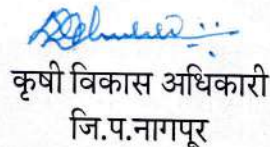 कृषी विकास अधिकारी
जि.प.नागपूर